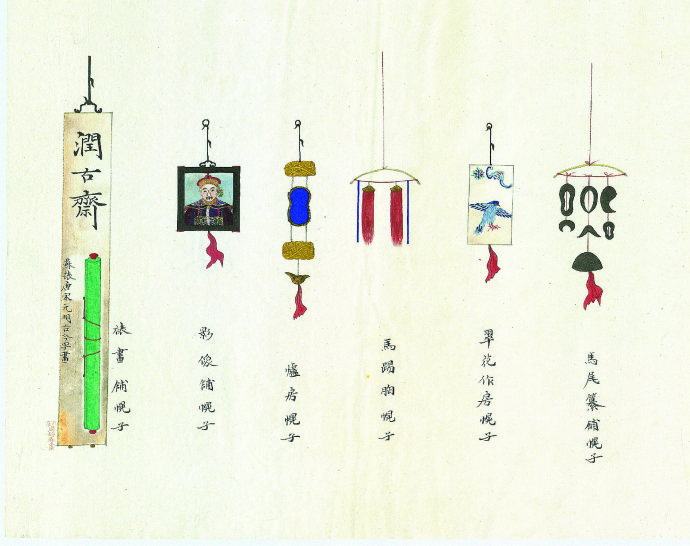 潤古齋
蘇裱唐宋元明古今字畫
裱畫鋪幌子
影像鋪幌子
爐房幌子
馬踢胸幌子
翠花作房幌子
馬尾纂鋪幌子